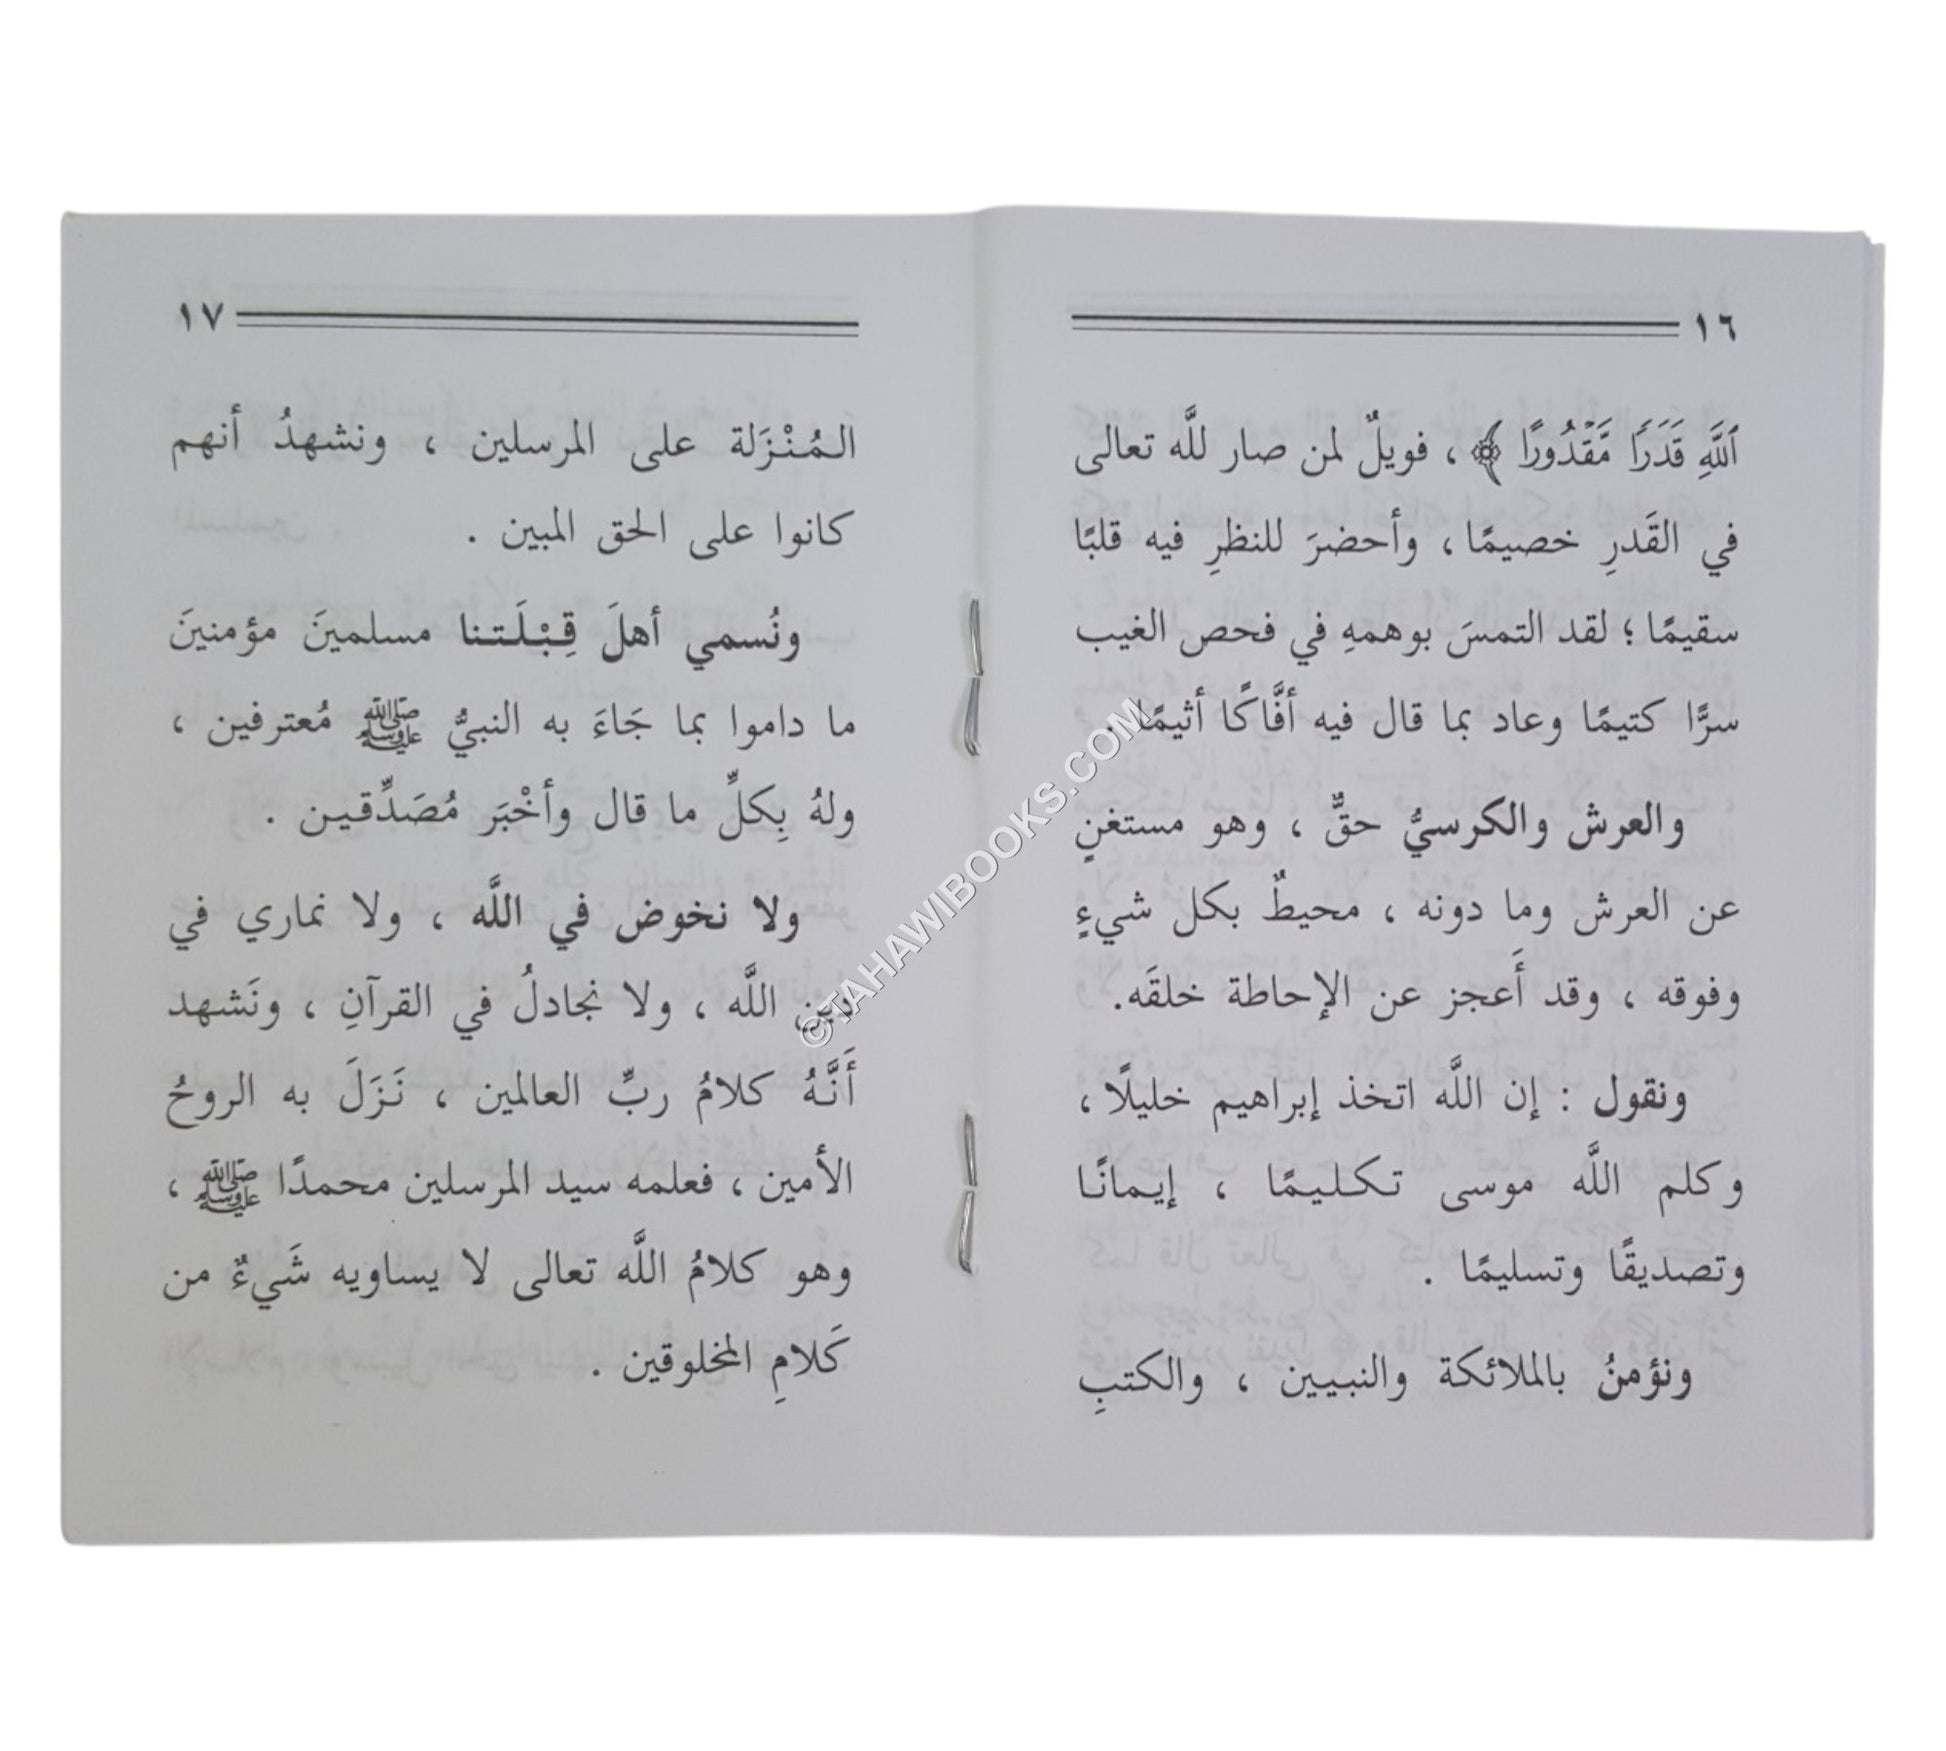 ١٦
ٱللَّهِ قَدَرًا مَّقْدُورًا ﴾ ، فويلٌ لمن صار للَّه تعالى
في القَدرِ خصيمًا ، وأحضرَ للنظرِ فيه قلبًا
سقيمًا ؛ لقد التمسَ بوهمهِ في فحص الغيب
سرًّا كتيمًا وعاد بما قال فيه أفَّاكًا أثيمًا .
والعرش والكرسيُّ حقٌّ ، وهو مستغنٍ
عن العرش وما دونه ، محيطٌ بكل شيءٍ
وفوقه ، وقد أَعجز عن الإحاطة خلقَه.
ونقول : إن اللَّه اتخذ إبراهيم خليلًا ،
وكلم اللَّه موسى تكليمًا ، إيمانًا
وتصديقًا وتسليمًا .
ونؤمنُ بالملائكة والنبيين ، والكتبِ
١٧
المُنْزَلة على المرسلين ، ونشهدُ أنهم
كانوا على الحق المبين .
ونُسمي أهلَ قِبْلَتنا مسلمينَ مؤمنينَ
ما داموا بما جَاءَ به النبيُّ ﷺ مُعترفين ،
ولهُ بِكلِّ ما قال وأخْبَر مُصَدِّقين .
ولا نخوض في اللَّه ، ولا نماري في
دين اللَّه ، ولا نجادلُ في القرآنِ ، ونَشهد
أَنَّهُ كلامُ ربِّ العالمين ، نَزَلَ به الروحُ
الأمين ، فعلمه سيد المرسلين محمدًا ﷺ ،
وهو كلامُ اللَّه تعالى لا يساويه شَيءٌ من
كَلامِ المخلوقين .
©TAHAWIBOOKS.COM